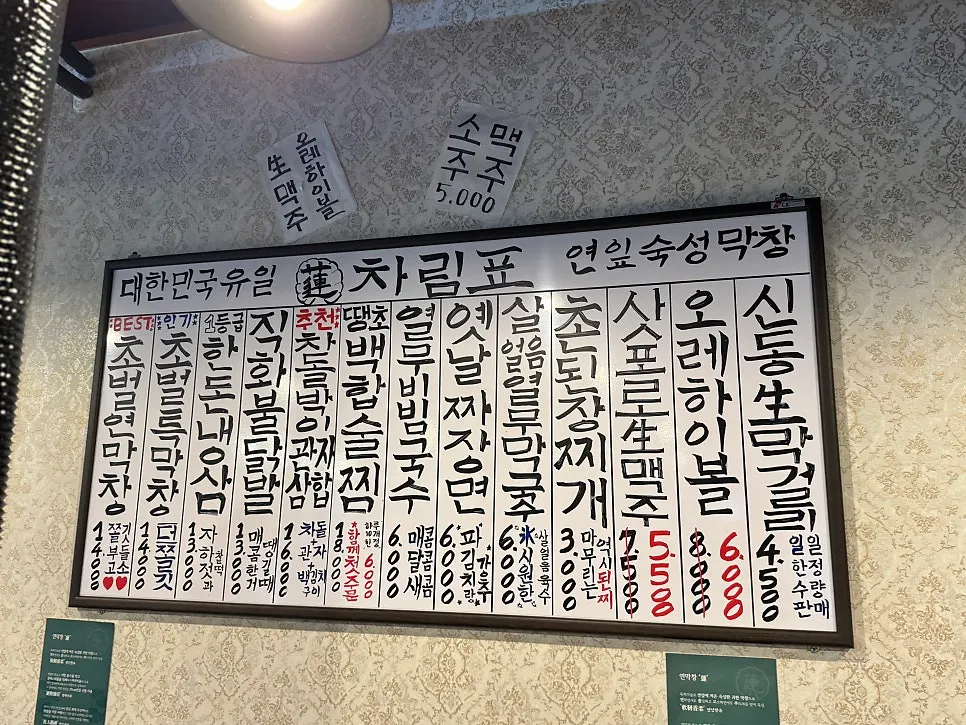 오레하이볼
生맥주
맥주
소주
5.000
대한민국유일 蓮 차림표 연잎숙성막창
신동生막걸리
4.500
일정량매
일한수판
오레하이볼
8.000
6.000
삿포로生맥주
7.500
5.500
촌된장찌개
3.000
역시된찌
마무리는
살얼음열무막국수
6.000
살얼음육수
氷시원한
옛날짜장면
6.000
가위주
파김치랑
열무비빔국수
6.000
매콤콤콤
달새
땡초백합술찜
18.000
하루10개한정
6.000
함께첫주문
추천
차돌박이관자삼합
16.000
차돌+관자+백김치
직화불닭발
13.000
땡기길때
매콤한거
신등급
한돈냉삼
13.000
찰떡
자하젓과
인기
초벌특막창
14.000
더쫄깃
BEST
초벌연막창
14.000
깃들소
쫄부고♥♥
연막창 "蓮"
연막창 "蓮"